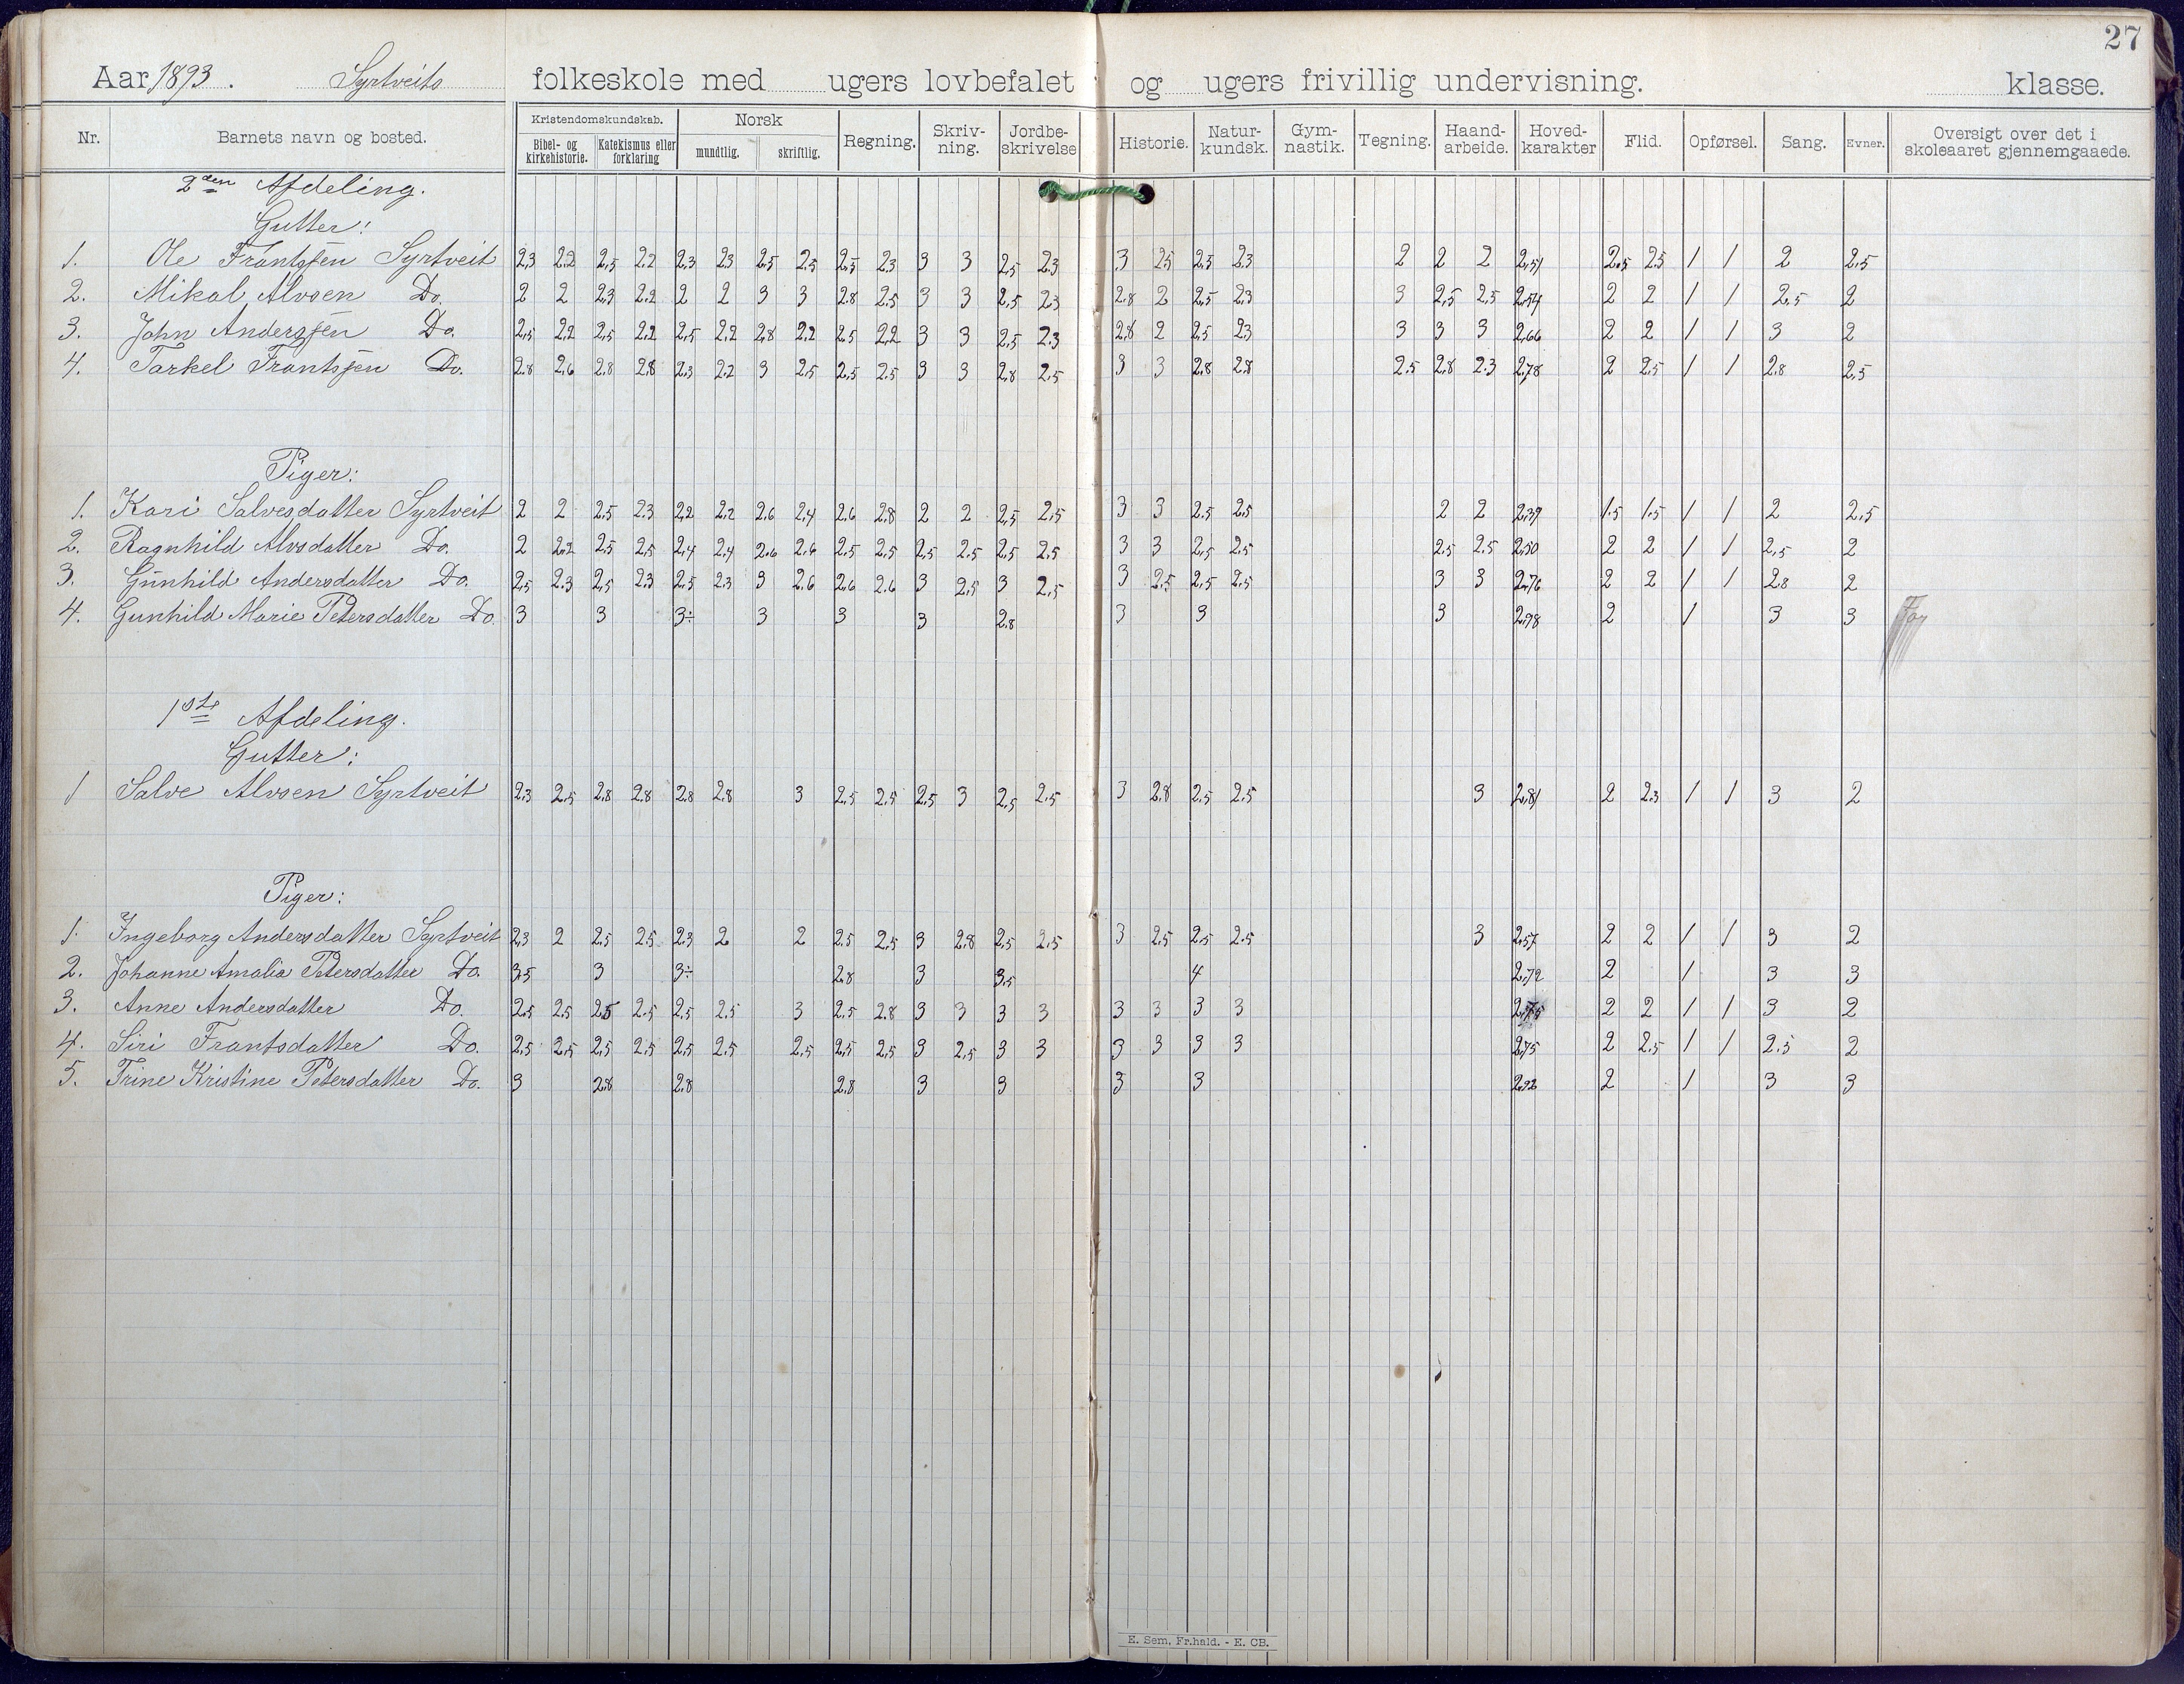 27
Aar 1893. Syrtveits folkeskole med ugers lovbefalet og ugers frivillig undervisning. klasse.
Nr. Barnets navn og bosted. Kristendomskundskab. Bibel- og kirkehistorie. Katekismus eller forklaring Norsk mundtlig. skriftlig. Regning. Skriv-ning. Jordbe-skrivelse Historie. Natur-kundsk. Gym-nastik. Tegning. Haand-arbeide. Hoved-karakter Flid. Opførsel. Sang. Evner. Oversigt over det i skoleaaret gjennemgaaede.
2den Afdeling.
Gutter:
1. Ole Frantssen Syrtveit 2,3 2.2 2,5 2.2 2,3 2.3 2.5 2.5 2,5 2.3 3 3 2,5 2.3 3 2.5 2,5 2.3 2 2 2 2,51 2.5 2.5 1 1 2 2.5
2. Mikal Alvsen Do. 2 2 2,3 2.2 2 2 3 3 2.8 2.5 3 3 2,5 2,3 2.8 2 2,5 2,3 3 2,5 2,5 2,54 2 2 1 1 2,5 2
3. John Anderssen Do. 2,5 2,2 2,5 2,2 2,5 2,2 2,8 2.2 2.5 2,2 3 3 2,5 2.3 2,8 2 2,5 2,3 3 3 3 2,66 2 2 1 1 3 2
4. Tarkel Frantssen Do. 2.8 2,6 2.8 2,8 2,3 2.2 3 2,5 2,5 2.5 3 3 2,8 2.5 3 3 2,8 2.8 2.5 2,8 2.3 2,78 2 2,5 1 1 2.8 2,5
Piger:
1. Kari Salvesdatter Syrtveit 2 2 2.5 2.3 2,2 2.2 2.6 2.4 2.6 2.8 2 2 2,5 2,5 3 3 2.5 2.5 2 2 2,39 1.5 1.5 1 1 2 2.5
2. Ragnhild Alvsdatter Do. 2 2.2 2.5 2,5 2,4 2.4 2.6 2.6 2.5 2,5 2,5 2.5 2,5 2.5 3 3 2,5 2.5 2.5 2.5 2,50 2 2 1 1 2,5 2
3. Gunhild Andersdatter Do. 2,5 2.3 2,5 2.3 2.5 2.3 3 2.6 2,6 2.6 3 2,5 3 2,5 3 2.5 2,5 2.5 3 3 2,76 2 2 1 1 2.8 2
4. Gunhild Marie Petersdatter Do. 3 3 3÷ 3 3 3 2.8 3 3 3 2,98 2 1 3 3
1ste Afdeling.
Gutter:
1 Salve Alvsen Syrtveit 2,3 2.5 2.8 2.8 2.8 2.8 3 2.5 2.5 2.5 3 2,5 2.5 3 2.8 2.5 2.5 3 2,81 2 2.3 1 1 3 2
Piger:
1. Ingeborg Andersdatter Syrtveit 2,3 2 2.5 2.5 2.3 2 2 2.5 2.5 3 2.8 2,5 2.5 3 2.5 2.5 2.5 3 2,57 2 2 1 1 3 2
2. Johanne Amalia Petersdatter Do. 3.5 3 3÷ 2.8 3 3,5 4 2,72 2 1 3 3
3. Anne Andersdatter Do. 2.5 2.5 2.5 2.5 2.5 2.5 3 2.5 2.8 3 3 3 3 3 3 3 3 2,75 2 2 1 1 3 2
4. Siri Frantsdatter Do. 2,5 2,5 2,5 2.5 2.5 2.5 2.5 2.5 2.5 3 2,5 3 3 3 3 3 3 2,75 2 2.5 1 1 2.5 2
5. Trine Kristine Petersdatter Do. 3 2.8 2.8 2.8 3 3 3 3 2,92 2 1 3 3
E. Sem, Fr.hald. - E. CB.